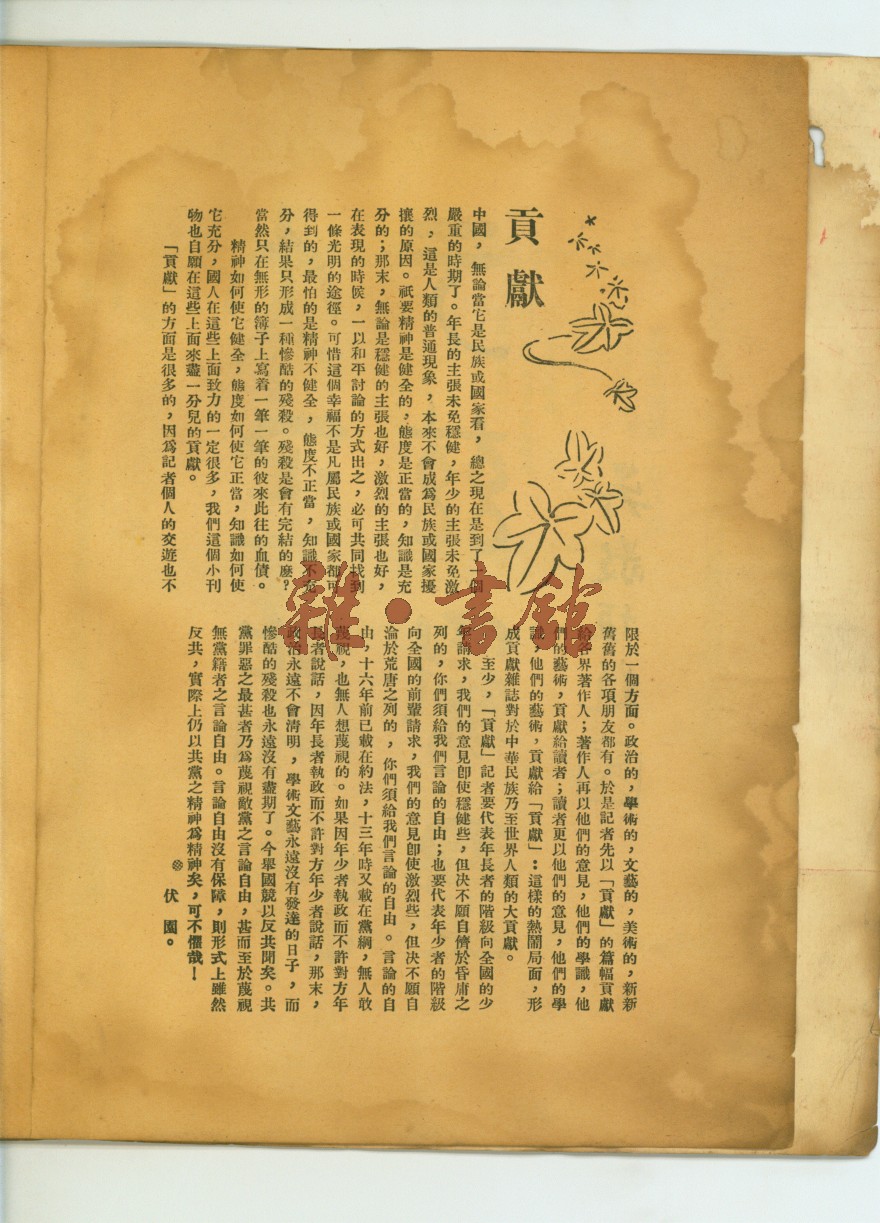 貢獻
中國，無論當它是民族或國家看，總之現在是到了一個
嚴重的時期了。年長的主張未免穩健，年少的主張未免激
烈，這是人類的普通現象，本來不會成爲民族或國家擾
攘的原因。祇要精神是健全的，態度是正當的，知識是充
分的；那末，無論是穩健的主張也好，激烈的主張也好，
在表現的時候，一以和平討論的方式出之，必可共同找到
一條光明的途徑。可惜這個幸福不是凡屬民族或國家都可
得到的，最怕的是精神不健全，態度不正當，知識不充
分，結果只形成一種慘酷的殘殺。殘殺是會有完結的麼？
當然只在無形的簿子上寫着一筆一筆的彼來此往的血債。
精神如何使它健全，態度如何使它正當，知識如何使
它充分，國人在這些上面致力的一定很多，我們這個小刊
物也自願在這些上面來盡一分兒的貢獻。
「貢獻」的方面是很多的，因爲記者個人的交遊也不
限於一個方面。政治的，學術的，文藝的，美術的，新新
舊舊的各項朋友都有。於是記者先以「貢獻」的篇幅貢獻
給各界著作人；著作人再以他們的意見，他們的學識，他
們的藝術，貢獻給讀者；讀者更以他們的意見，他們的學
識，他們的藝術，貢獻給「貢獻」：這樣的熱鬧局面，形
成貢獻雜誌對於中華民族乃至世界人類的大貢獻。
至少，「貢獻」記者要代表年長者的階級向全國的少
年請求，我們的意見卽使穩健些，但决不願自儕於昏庸之
列的，你們須給我們言論的自由；也要代表年少者的階級
向全國的前輩請求，我們的意見卽使激烈些，但决不願自
淪於荒唐之列的，你們須給我們言論的自由。言論的自
由，十六年前已載在約法，十三年時又載在黨綱，無人敢
蔑視，也無人想蔑視的。如果因年少者執政而不許對方年
長者說話，因年長者執政而不許對方年少者說話，那末，
政治永遠不會清明，學術文藝永遠沒有發達的日子，而
慘酷的殘殺也永遠沒有盡期了。今舉國競以反共聞矣。共
黨罪惡之最甚者乃爲蔑視敵黨之言論自由，甚而至於蔑視
無黨籍者之言論自由。言論自由沒有保障，則形式上雖然
反共，實際上仍以共黨之精神爲精神矣，可不懼哉！
※伏園。
雜·書館